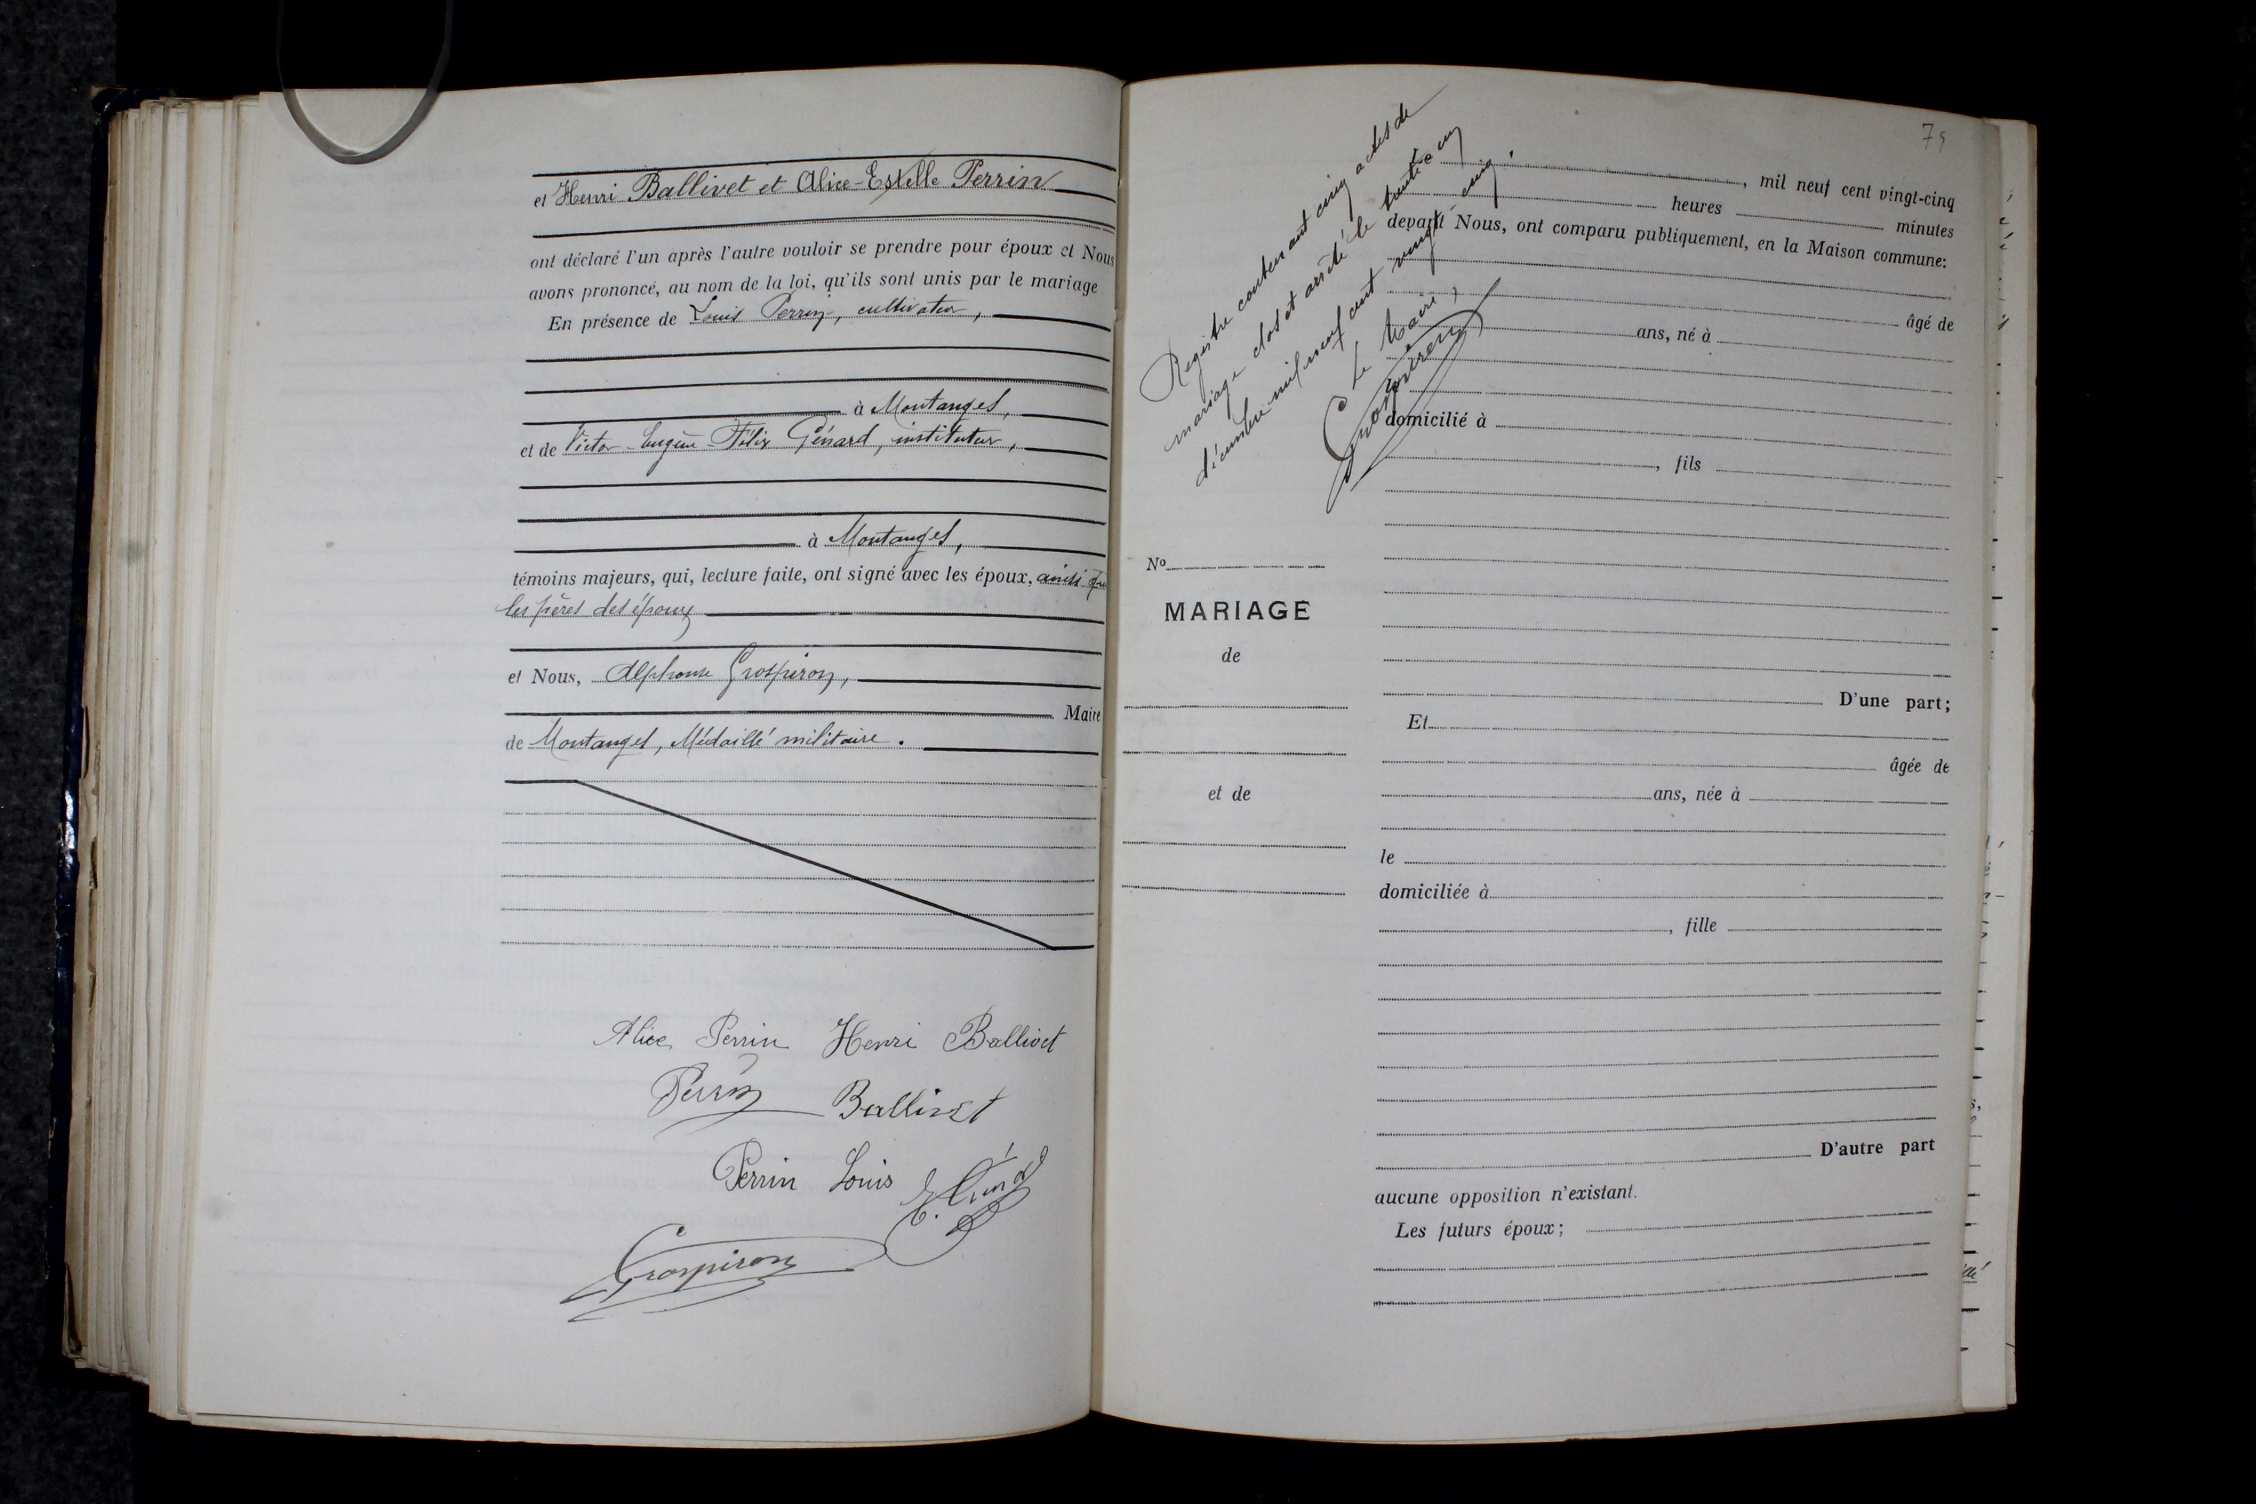 et Henri Ballivet et Alice-Estelle Perrin
ont déclaré l'un après l'autre vouloir se prendre pour époux et Nous
avons prononcé, au nom de la loi, qu'ils sont unis par le mariage
En présence de Louis Perrin, cultivateur,
à Montanges,
et de Victor-Eugène-Félix Génard, instituteur,
à Montanges,
témoins majeurs, qui, lecture faite, ont signé avec les époux, ainsi que
les pères des époux
et Nous, Alphonse Grospiron,
Maire
de Montanges, Médaillé militaire.
Alice Perrin Henri Ballivet
Perrin Ballivet
Perrin Louis
Grospiron
Registre contenant cinq actes de
mariage clos et arrêté le trente et un
décembre mil neuf cent vingt-cinq.
Le Maire,
Grospiron
No
MARIAGE
de
et de
75
, mil neuf cent vingt-cinq
heures minutes
devant Nous, ont comparu publiquement, en la Maison commune:
âgé de
ans, né à
domicilié à
, fils
D'une part;
Et
âgée de
ans, née à
le
domiciliée à
, fille
D'autre part
aucune opposition n'existant.
Les futurs époux;